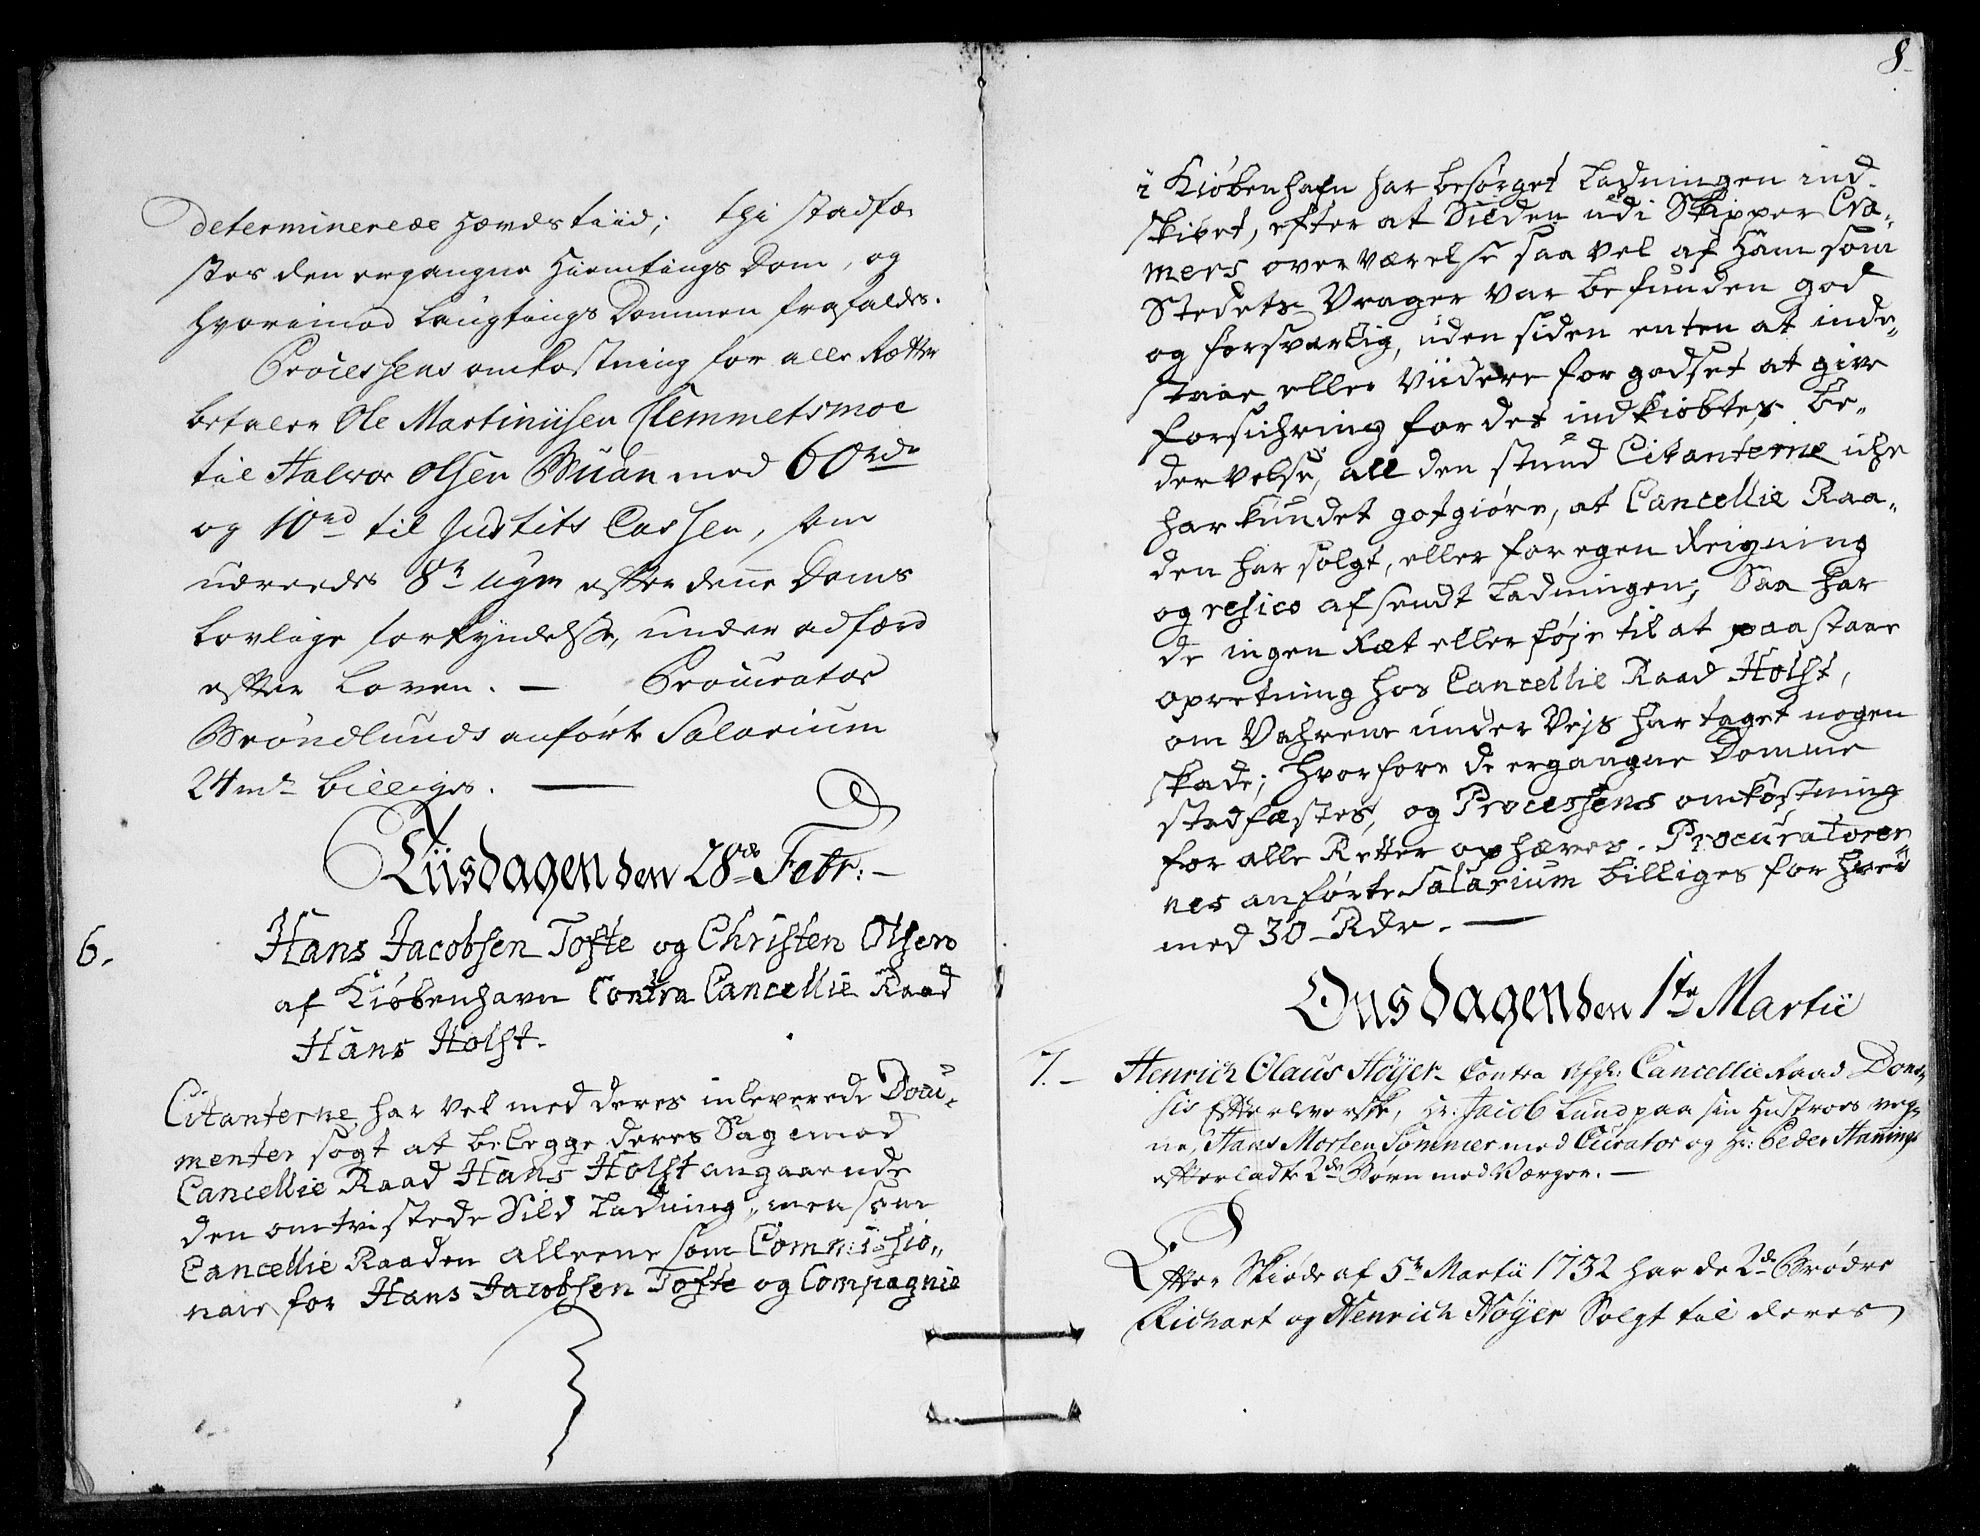 determinerede Hævdstiid; thi stadfæ-
stes den ergangne Hiemtings Dom, og
hvorimod Laugtings Dommen frafaldes.
Processens omkostning for alle Rætter
betaler Ole Martinüsen Klemmetsmoe
til Halvor Olsen Bruan med 60 rdr
og 10 rd til Justits Cassen, som
udreedes 8te uger efter denne Doms
Lovlige forkyndelse, under adfærd
efter Loven. — Procurator
Brøndlunds anførte Salarium
24 rdr billiges. —
Tiisdagen den 28de Febr: —
6.
Hans Jacobsen Tofte og Christen Olsen
af Kiøbenhavn Contra Cancellie Raad
Hans Holst.
Citanterne har vel med deres inleverede Docu-
menter søgt at belegge deres Sag imod
Cancellie Raad Hans Holst angaaende
den omtvistede Sild Ladning, men som
Cancellie Raaden alleene som Commissio-
nair for Hans Jacobsen Tofte og Compagnie
8
i Kiøbenhafn har besørget Ladningen ind-
skibet, efter at Silden udi Skipper Cra-
mers overværelse saa vel af Ham som
Stedets Vrager var befunden god
og forsvarlig, uden siden enten at inde-
staae eller Viidere for godset at give
forsichring for det indkiøbtes be-
dervelse, all den stund Citanterne icke
har kundet gotgiøre, at Cancellie Raa-
den har solgt, eller for egen Reigning
og resico afsendt Ladningen; Saa har
de ingen Ræt eller føje til at paastaae
opretning hos Cancellie Raad Holst,
om Vahrene under Vejs har taget nogen
skade; hvorfore de ergangne Domme
stadfæstes, og Processens omkostning
for alle Retter ophæves. Procuratorer-
nes anførte Salarium billiges for hver
med 30 Rdr. —
Onsdagen den 1te Martii
7. —
Henrich Olaus Høyer Contra Afg: Cancellie Raad Dons
sis Efterleverske, Hr: Jacob Lund paa sin Hustroes veg-
ne, Hans Morten Sommer med Curator og Hr: Peder Hannings
efterladte 2de Børn med Værger. —
Efter Skiøde af 5te Martii 1732 har de 2de Brødre
Richart og Henrich Høyer Solgt til deres